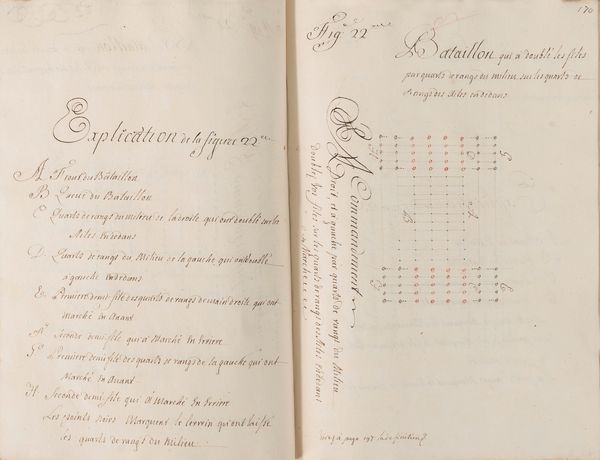 Explication de la figure 22me
A. Front du Bataillon
B. Queue du Bataillon
C. Quarts de rangs du milieu de la droite qui ont doublé sur les
Ailes en dedans
D. Quarts de rangs du Milieu de la gauche qui ont doublé
à gauche en dedans
E. Premiere demi file des quarts de rangs de main droite qui ont
Marché en Auant
F. Seconde demi file qui a Marché En Arriere
G. Premiere demi file des quarts de rangs de la gauche qui ont
Marché en Auant
H. Seconde demi file qui a Marché En Arriere
Les points noirs Marquent le terrein qu'ont laissé
les quarts de rangs du Milieu
170
Figre 22me
Bataillon qui a doublé les files
par quarts de rangs du milieu sur les quarts de
rangs des Ailes en dedans
Commandement
A Droit, et à gauche par quarts de rangs du Milieu
doublez vos files sur les quarts de rangs des Ailes en dedans
Marche
H
G
D
B
A
F
C
E
Voyez à page 197